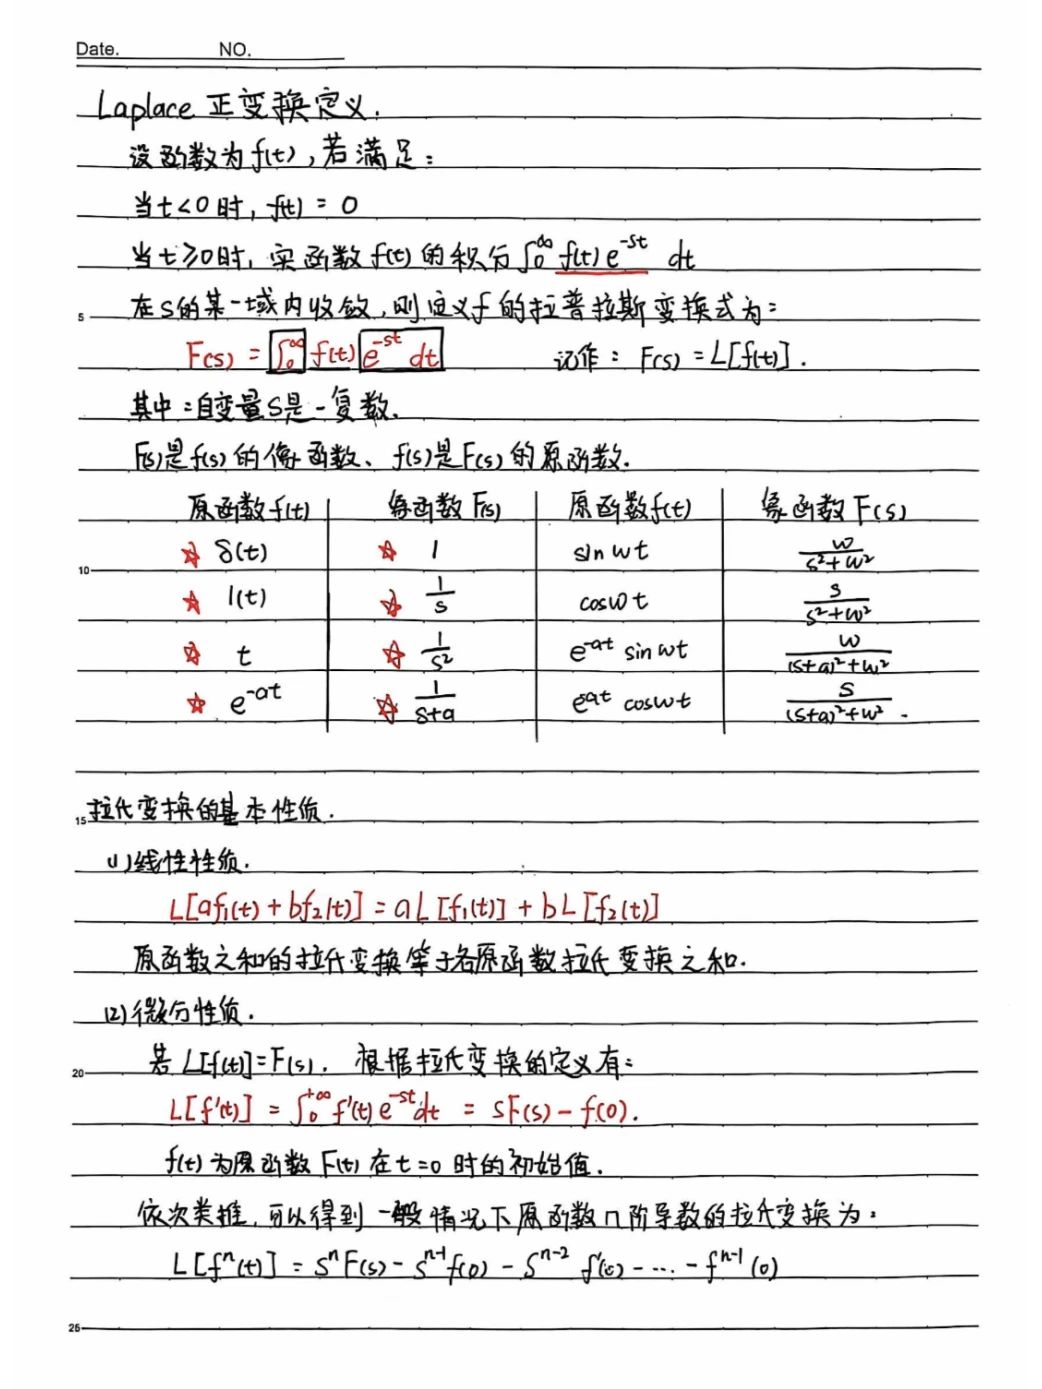 Date. NO.
Laplace 正变换定义.
设函数为f(t),若满足:
当t<0时, f(t) = 0
当t≥0时, 实函数f(t)的积分∫₀^∞ f(t)e^{-st} dt
5 在S的某一域内收敛,则定义f的拉普拉斯变换式为:
F(s) = ∫₀^∞ f(t) e^{-st} dt 记作: F(s) = L[f(t)].
其中:自变量S是一复数.
F(s)是f(s)的像函数、f(s)是F(s)的原函数.
原函数f(t) 象函数F(s) 原函数f(t) 象函数F(s)
10 ☆ δ(t) ☆ 1 sin wt w/(s²+w²)
☆ 1(t) ☆ 1/s coswt s/(s²+w²)
☆ t ☆ 1/s² e^{-at} sin wt w/((s+a)²+w²)
☆ e^{-at} ☆ 1/(s+a) e^{at} coswt s/((s+a)²+w²).
15 拉氏变换的基本性质.
(1)线性性质.
L[af₁(t) + bf₂(t)] = aL[f₁(t)] + bL[f₂(t)]
原函数之和的拉氏变换等于各原函数拉氏变换之和.
(2)微分性质.
20 若L[f(t)]=F(s), 根据拉氏变换的定义有:
L[f'(t)] = ∫₀^{+∞} f'(t)e^{-st}dt = sF(s) - f(0).
f(t)为原函数F(t)在t=0时的初始值.
依次类推,可以得到一般情况下原函数n阶导数的拉氏变换为:
L[fⁿ(t)] = SⁿF(s) - S^{n-1}f(0) - S^{n-2}f'(0) - ... - f^{n-1}(0)
25